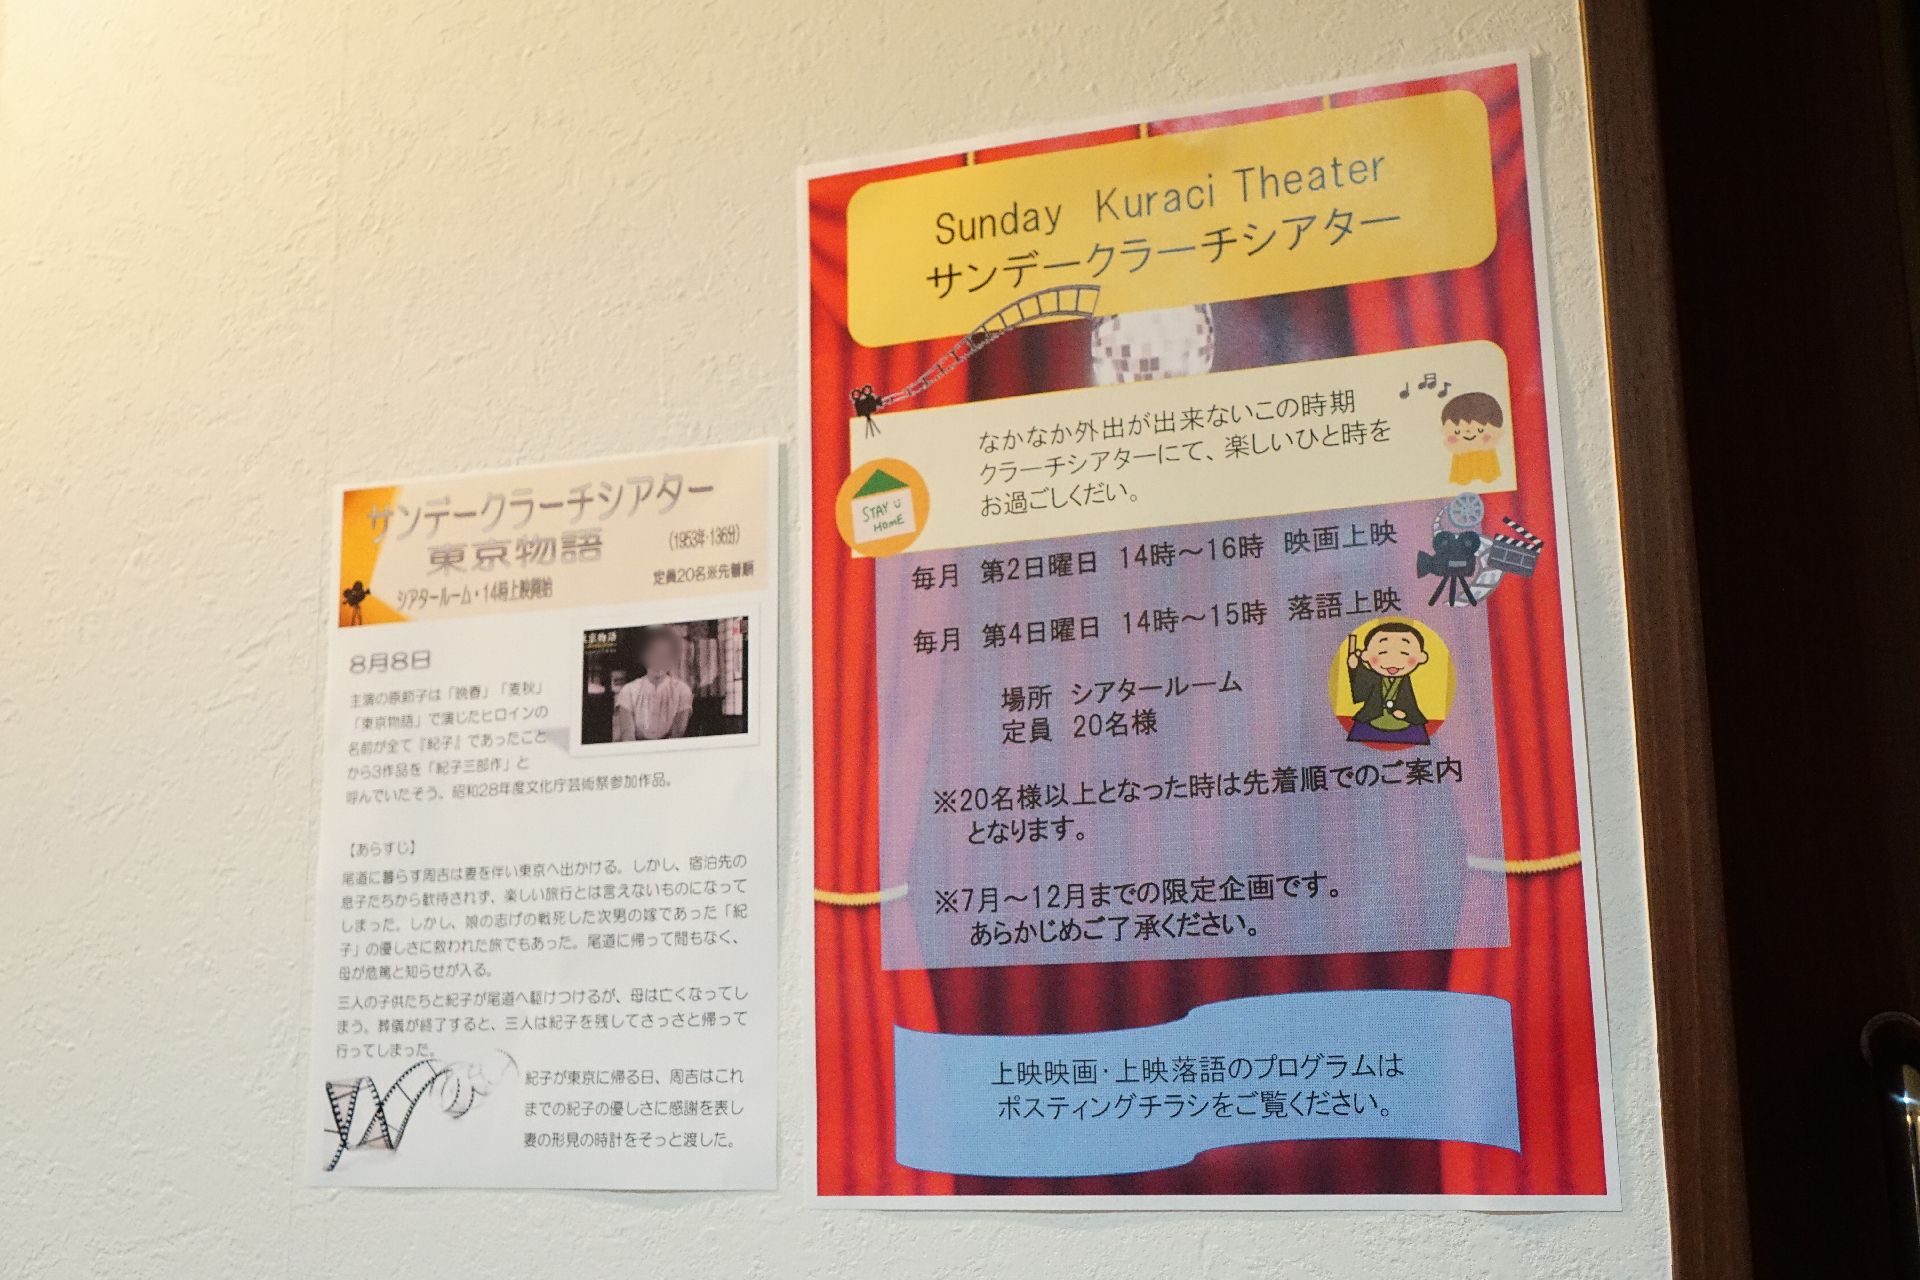 サンデークラーチシアター
東京物語
(1953年・136分)
シアタールーム・14時上映開始
定員20名※先着順
8月8日
京物語
主演の原節子は「晩春」「麦秋」
「東京物語」で演じたヒロインの
名前が全て『紀子』であったこと
から3作品を「紀子三部作」と
呼んでいたそう。昭和28年度文化庁芸術祭参加作品。
【あらすじ】
尾道に暮らす周吉は妻を伴い東京へ出かける。しかし、宿泊先の
息子たちから歓待されず、楽しい旅行とは言えないものになって
しまった。しかし、娘の志げの戦死した次男の嫁であった「紀
子」の優しさに救われた旅でもあった。尾道に帰って間もなく、
母が危篤と知らせが入る。
三人の子供たちと紀子が尾道へ駆けつけるが、母は亡くなってし
まう。葬儀が終了すると、三人は紀子を残してさっさと帰って
行ってしまった。
紀子が東京に帰る日、周吉はこれ
までの紀子の優しさに感謝を表し
妻の形見の時計をそっと渡した。
Sunday Kuraci Theater
サンデークラーチシアター
なかなか外出が出来ないこの時期
クラーチシアターにて、楽しいひと時を
お過ごしくだい。
STAY
HOME
毎月 第2日曜日 14時～16時 映画上映
毎月 第4日曜日 14時～15時 落語上映
場所 シアタールーム
定員 20名様
※20名様以上となった時は先着順でのご案内
となります。
※7月～12月までの限定企画です。
あらかじめご了承ください。
上映映画・上映落語のプログラムは
ポスティングチラシをご覧ください。